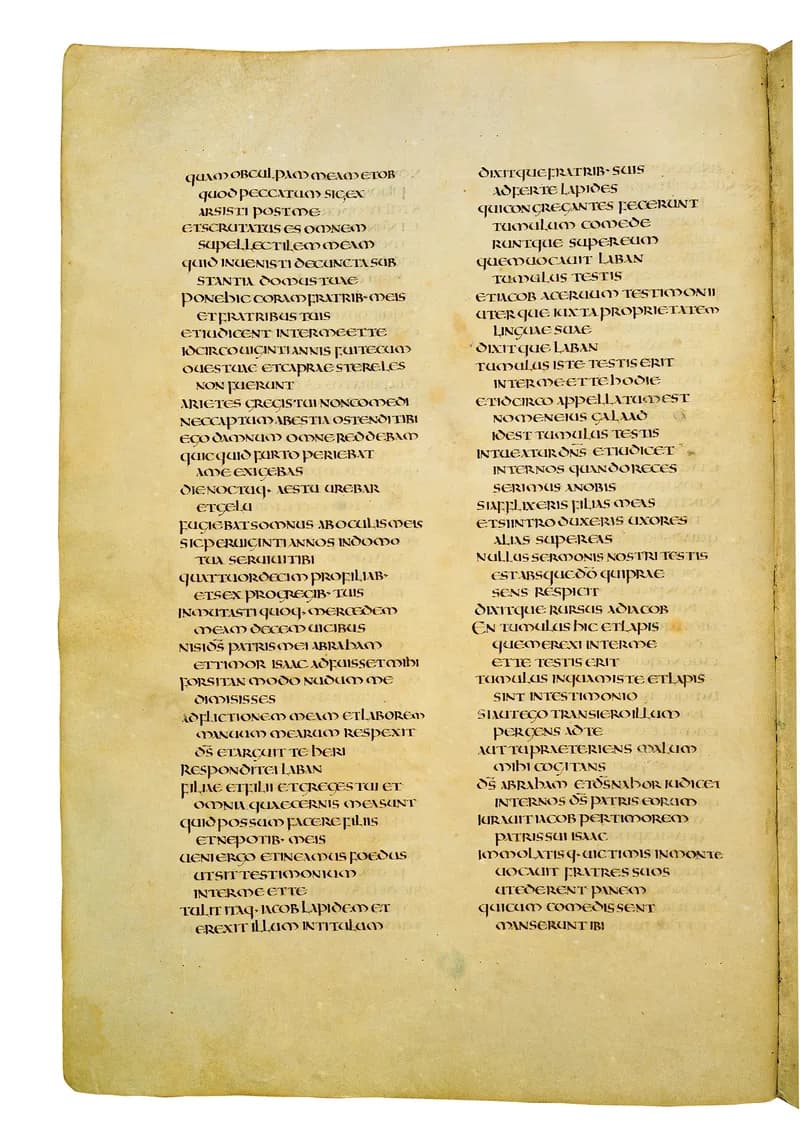 quam ob culpam meam et ob
quod peccatum sic ex
arsisti post me
et scrutatus es omnem
supellectilem meam
quid inuenisti de cuncta sub
stantia domus tuae
pone hic coram fratrib· meis
et fratribus tuis
et iudicent inter me et te
idcirco uiginti annis fui tecum
oues tuae et caprae stereles
non fuerunt
arietes gregis tui non comedi
nec captum a bestia ostendi tibi
ego damnum omne reddebam
quicquid furto periebat
a me exigebas
die noctuq· aestu urebar
et gelu
fugiebat somnus ab oculis meis
sic per uiginti annos in domo
tua seruiui tibi
quattuordecim pro filiab·
et sex pro gregib· tuis
inmutasti quoq· mercedem
meam decem uicibus
nisi d̄s̄ patris mei abraham
et timor isaac adfuisset mihi
forsitan modo nudum me
dimisisses
adflictionem meam et laborem
manuum mearum respexit
d̄s̄ et arguit te heri
respondit ei laban
filiae et filii et greges tui et
omnia quae cernis mea sunt
quid possum facere filiis
et nepotib· meis
ueni ergo et ineamus foedus
ut sit testimonium
inter me et te
tulit itaq· iacob lapidem et
erexit illum in titulum
dixitque fratrib· suis
adferte lapides
qui congregantes fecerunt
tumulum comede
runtque super eum
quem uocauit laban
tumulus testis
et iacob aceruum testimonii
uterque iuxta proprietatem
linguae suae
dixitque laban
tumulus iste testis erit
inter me et te hodie
et idcirco appellatum est
nomen eius galaad
id est tumulus testis
intueatur d̄n̄s̄ et iudicet
inter nos quando reces
serimus a nobis
si afflixeris filias meas
et si introduxeris uxores
alias super eas
nullus sermonis nostri testis
est absque d̄ō qui prae
sens respicit
dixitque rursus ad iacob
En tumulus hic et lapis
quem erexi inter me
et te testis erit
tumulus inquam iste et lapis
sint in testimonio
si aut ego transiero illum
pergens ad te
aut tu praeteriens malum
mihi cogitans
d̄s̄ abraham et d̄s̄ nahor iudicet
inter nos d̄s̄ patris eorum
iurauit iacob per timorem
patris sui isaac
immolatisq· uictimis in monte
uocauit fratres suos
ut ederent panem
qui cum comedissent
manserunt ibi